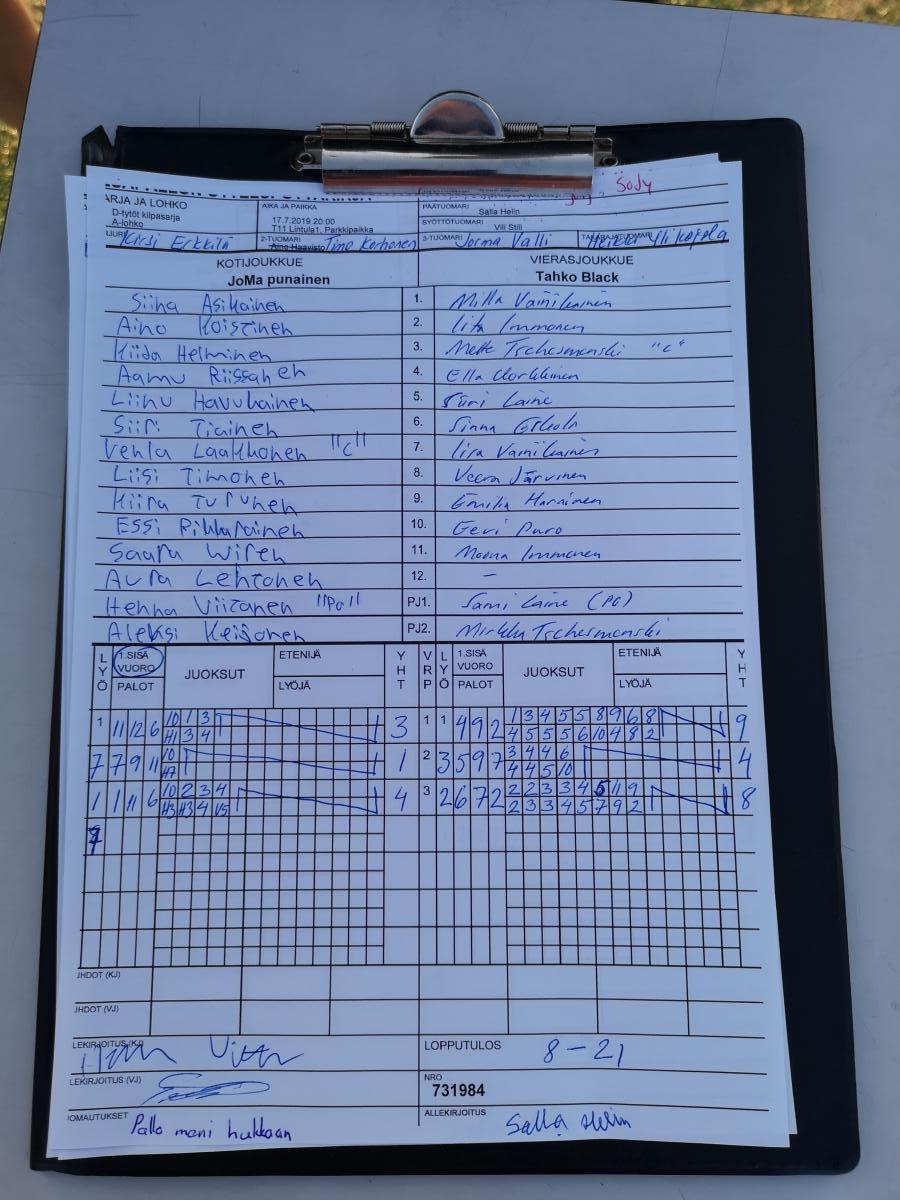 Sody
ARJA JA LOHKO
D-tytöt kilpasarja
A-lohko
AIKA JA PAIKKA
17.7.2019 20:00
T11 Lintula1, Parkkipaikka
PÄÄTUOMARI
Salla Helin
SYÖTTÖTUOMARI
Vili Still
Kirsi Erkkilä
2-TUOMARI
Aino Haavisto Timo Korhonen
3-TUOMARI Jorma Valli
KOTIJOUKKUE
JoMa punainen
VIERASJOUKKUE
Tahko Black
Siina Asikainen 1. Milla Vainikainen
Aino Koistinen 2. Iita Immonen
Kiida Helminen 3. Mette Tschesmenski "c"
Aamu Riissanen 4. Ella
Liinu Havukainen 5. Siiri Laine
Siiri Tiainen 6. Sinna
Venla Laakkonen "C" 7. Iira Vainikainen
Liisi Timonen 8. Veera Järvinen
Kiira Turunen 9. Emilia
Essi Pikkarainen 10. Geri Puro
Saara Wiren 11. Moona Immonen
Aura Lehtonen 12. –
Henna Viitanen "Pa" PJ1. Sami Laine (PG)
Aleksi Keijonen PJ2. Mirkku Tschesmenski
LYÖ 1.SISÄ VUORO PALOT JUOKSUT ETENIJÄ LYÖJÄ YHT VRP LYÖ 1.SISÄ VUORO PALOT JUOKSUT ETENIJÄ LYÖJÄ YHT
1 11 12 6 10 1 3 3 1 1 4 9 2 1 3 4 5 5 8 9 6 8 9
H1 3 4 4 5 5 5 6 10 4 8 2
7 7 9 11 10 1 2 3 5 9 7 3 4 4 6 4
H7 4 4 5 10
1 1 11 6 10 2 3 4 4 3 2 6 7 2 2 2 3 3 4 5 11 9 8
H3 H3 4 V5 2 3 3 4 5 7 9 2
JHDOT (KJ)
JHDOT (VJ)
LEKIRJOITUS (KJ)
LOPPUTULOS 8 – 21
LEKIRJOITUS (VJ)
NRO
731984
OMAUTUKSET Pallo meni hukkaan
ALLEKIRJOITUS Salla Helin